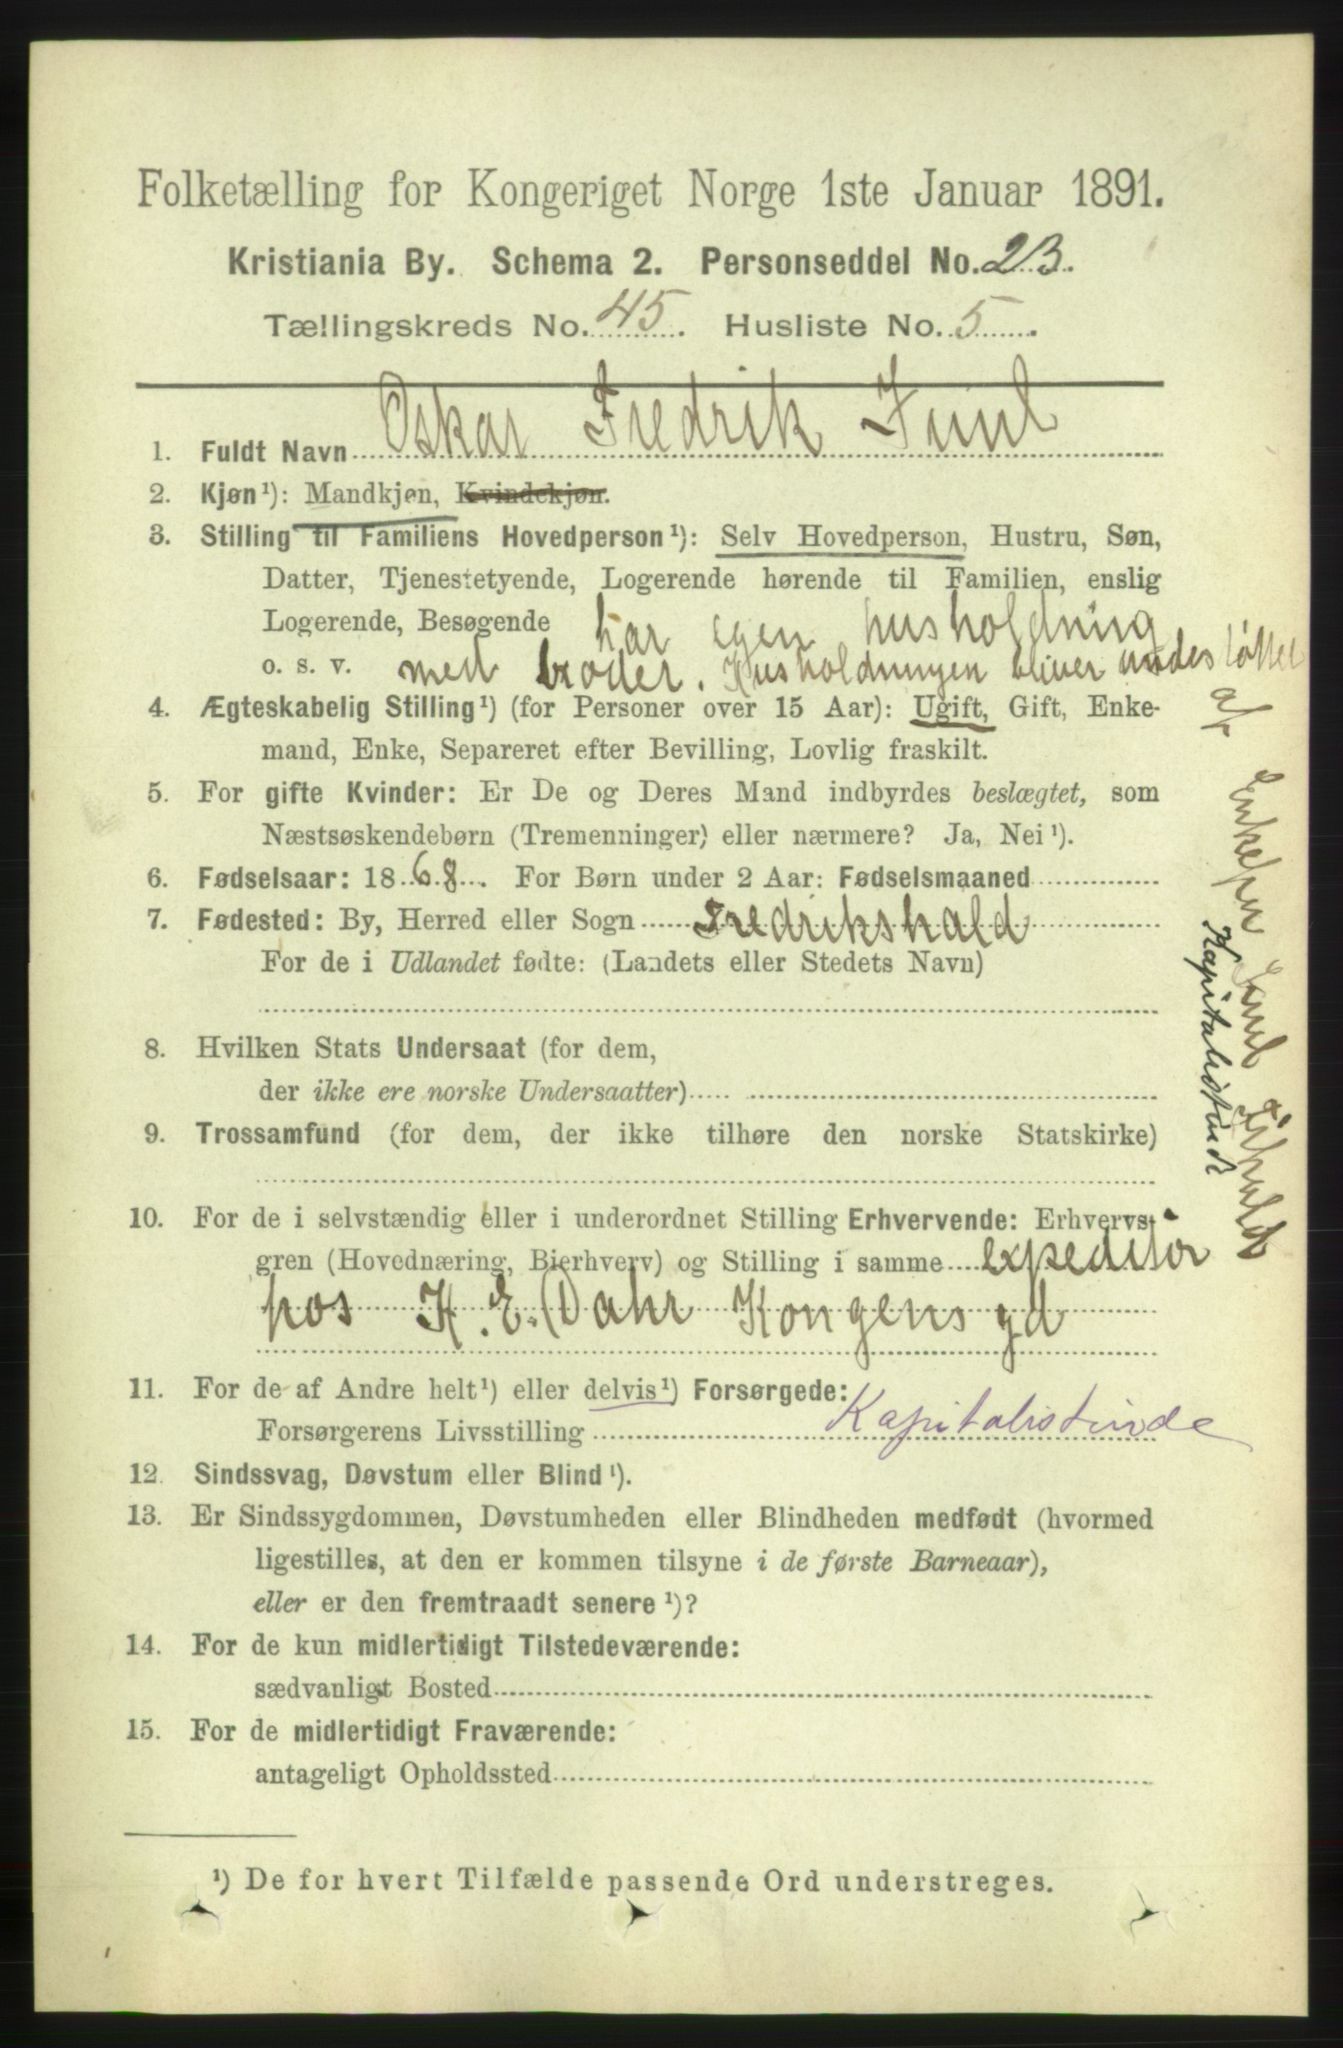 Folketælling for Kongeriget Norge 1ste Januar 1891.
Kristiania By. Schema 2. Personseddel No. 23.
Tællingskreds No. 45. Husliste No. 5.
1. Fuldt Navn Oskar Fredrik
2. Kjøn¹): Mandkjøn, Kvindekjøn.
3. Stilling til Familiens Hovedperson¹): Selv Hovedperson, Hustru, Søn,
Datter, Tjenestetyende, Logerende hørende til Familien, enslig
Logerende, Besøgende har egen husholdning
o. s. v. med broder. Husholdningen bliver understøttet
af Enkefru
Kapitalistinde
4. Ægteskabelig Stilling¹) (for Personer over 15 Aar): Ugift, Gift, Enke-
mand, Enke, Separeret efter Bevilling, Lovlig fraskilt.
5. For gifte Kvinder: Er De og Deres Mand indbyrdes beslægtet, som
Næstsøskendebørn (Tremenninger) eller nærmere? Ja, Nei¹).
6. Fødselsaar: 1868. For Børn under 2 Aar: Fødselsmaaned
7. Fødested: By, Herred eller Sogn Fredrikshald
For de i Udlandet fødte: (Landets eller Stedets Navn)
8. Hvilken Stats Undersaat (for dem,
der ikke ere norske Undersaatter)
9. Trossamfund (for dem, der ikke tilhøre den norske Statskirke)
10. For de i selvstændig eller i underordnet Stilling Erhvervende: Erhvervs-
gren (Hovednæring, Bierhverv) og Stilling i samme expeditør
hos K. E. Dahr Kongens gd
11. For de af Andre helt¹) eller delvis¹) Forsørgede:
Forsørgerens Livsstilling Kapitalistinde
12. Sindssvag, Døvstum eller Blind¹).
13. Er Sindssygdommen, Døvstumheden eller Blindheden medfødt (hvormed
ligestilles, at den er kommen tilsyne i de første Barneaar),
eller er den fremtraadt senere¹)?
14. For de kun midlertidigt Tilstedeværende:
sædvanligt Bosted
15. For de midlertidigt Fraværende:
antageligt Opholdssted
¹) De for hvert Tilfælde passende Ord understreges.